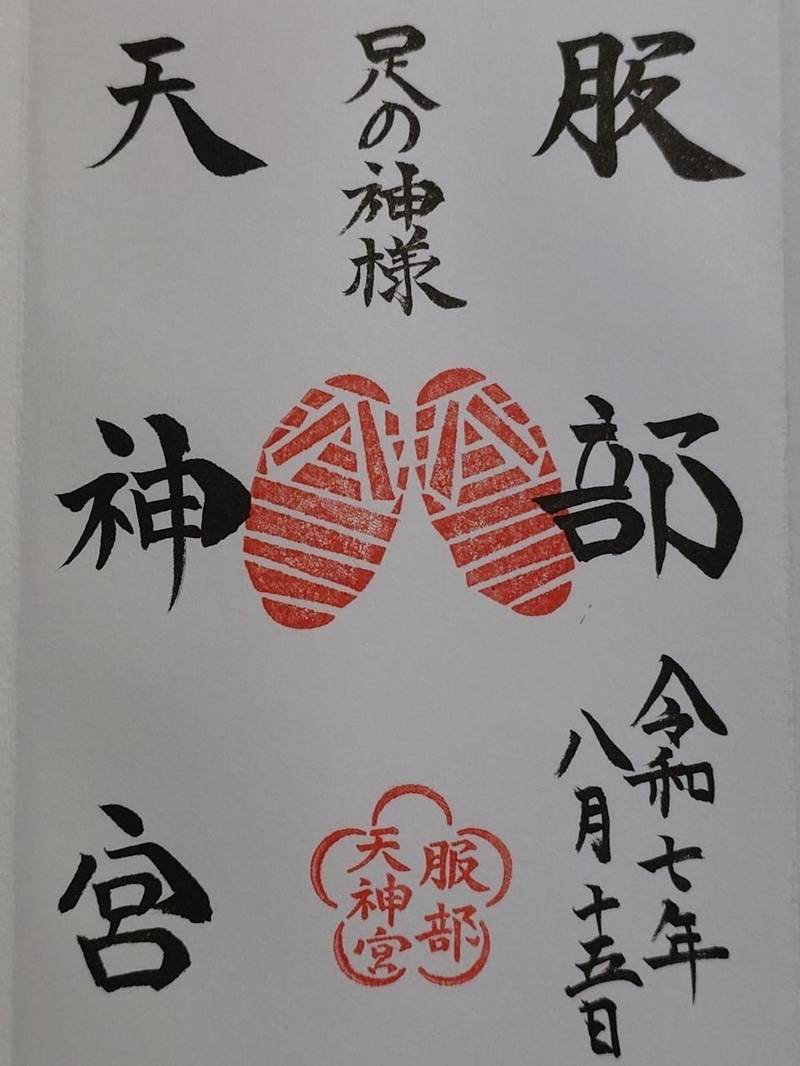 服部
令和七年
八月十五日
足の神様
服部
天神宮
天神宮